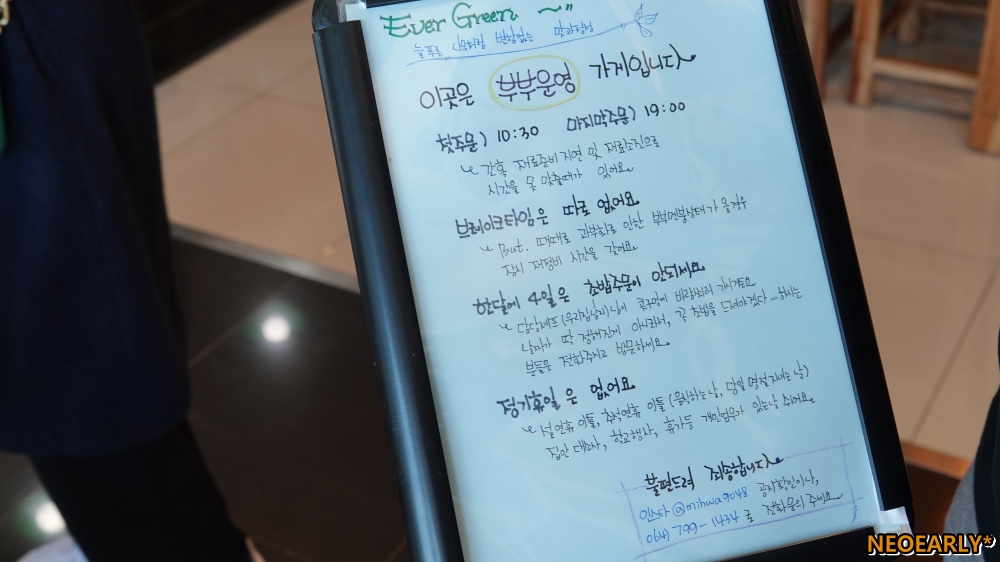 Ever Green ~"
늘푸른 나무처럼 변함없는 맛과정성
이곳은 부부운영 가게입니다
첫주문) 10:30 마지막주문) 19:00
간혹 재료준비 지연 및 재료소진으로
시간을 못 맞출때가 있어요
브레이크타임은 따로 없어요
But. 때때로 과부하로 인한 부부멘붕상태가 올경우
잠시 재정비 시간을 갖어요
한달에 4일은 초밥주문이 안되세요
담당셰프(우리집남자)님이 콧구멍에 바람쐬러 가시거든요
날짜가 딱 정해진게 아니라서, 꼭 초밥을 드셔야겠다... 하시는
분들은 전화주시고 방문하세요
정기휴일은 없어요
설연휴 이틀, 추석연휴 이틀 (음식하는날, 당일 명절지내는 날)
집안 대소사, 학교행사, 휴가등 개인업무가 있는날 쉬어요
불편드려 죄송합니다
인스타 @mihwa9048 공지확인이나,
064) 799-1434 로 전화문의 주세요
NEOEARLY*